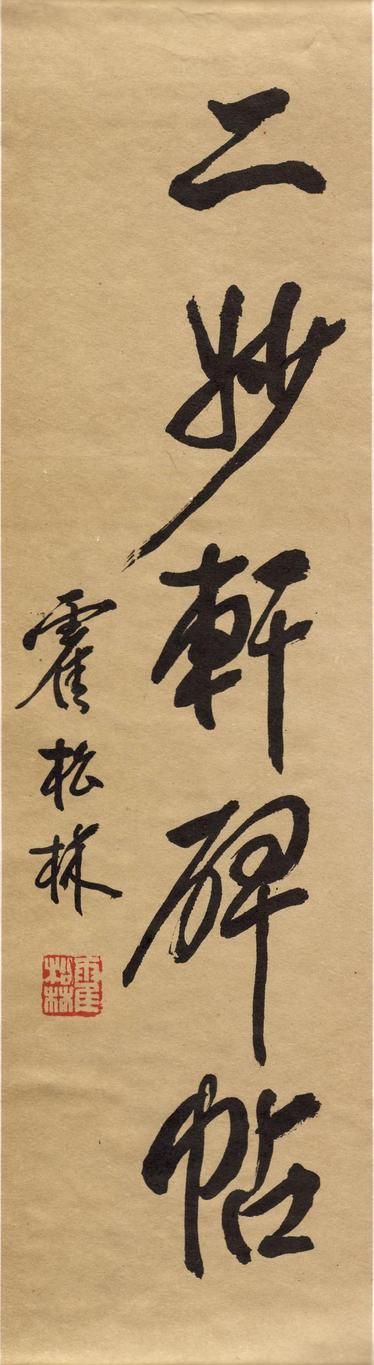 二妙軒碑帖
霍松林
霍松林